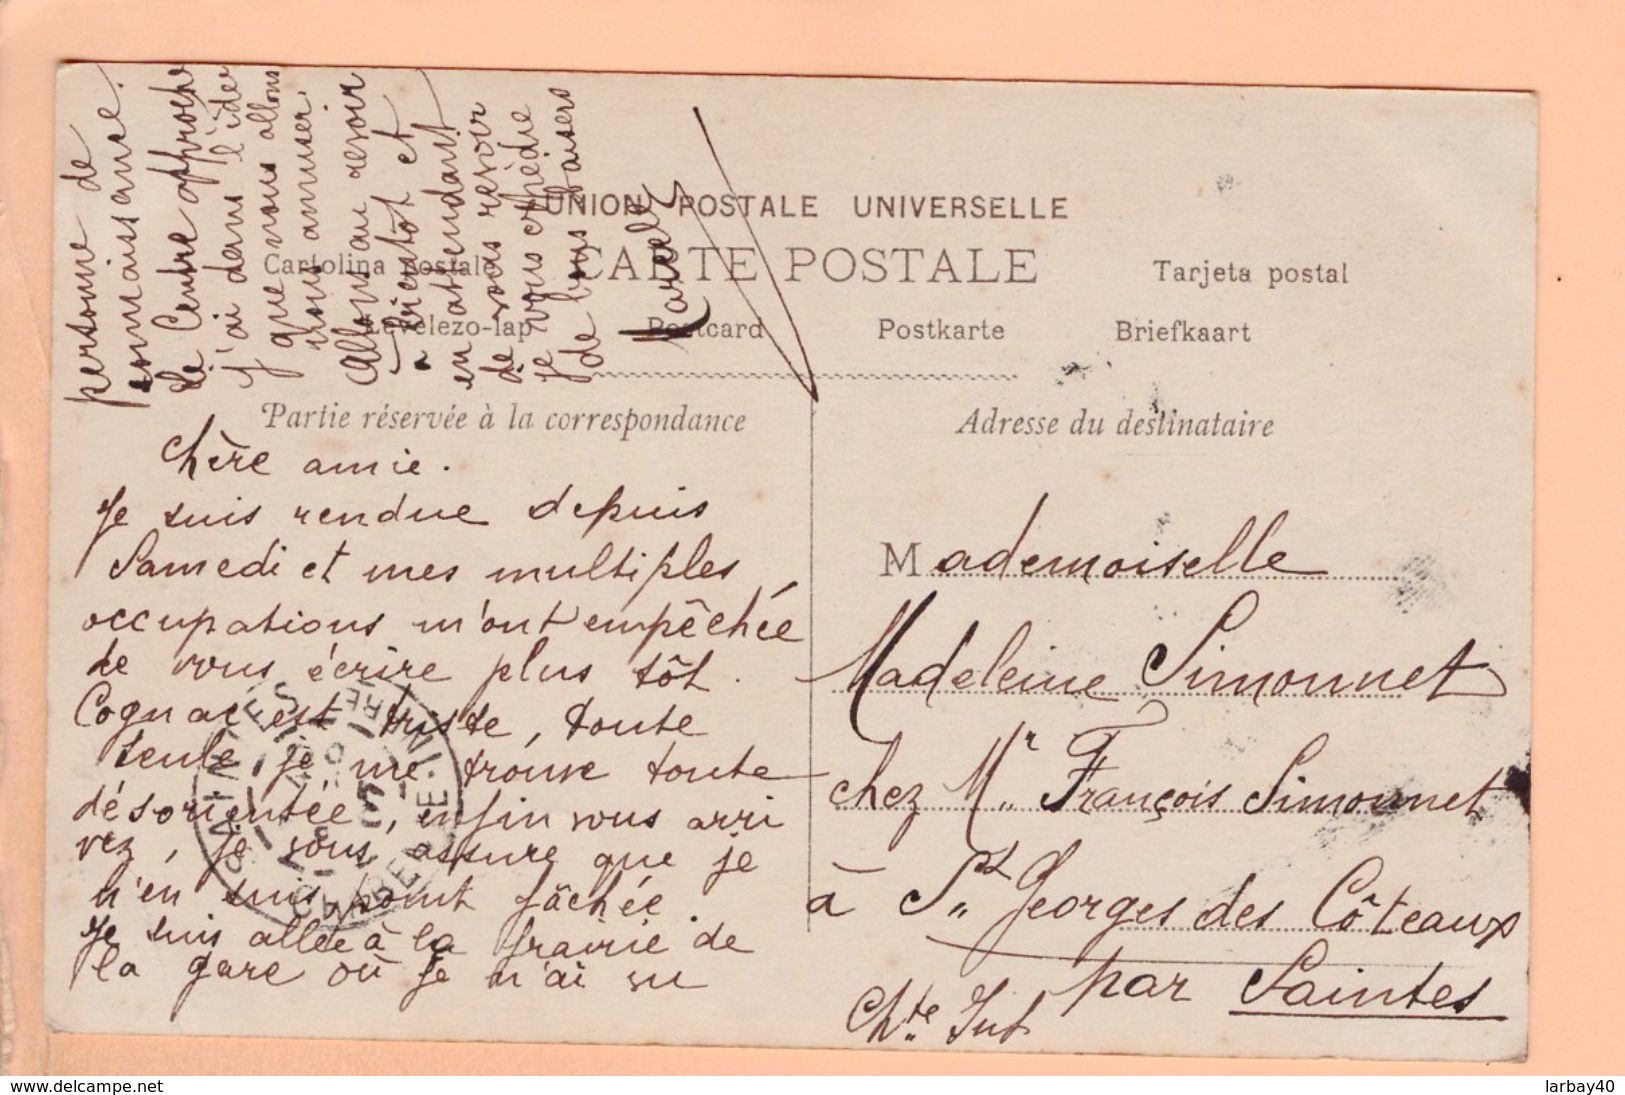 UNION POSTALE UNIVERSELLE
CARTE POSTALE
Cartolina postale
Tarjeta postal
Levelezo-lap
Postcard
Postkarte
Briefkaart
Partie réservée à la correspondance
Adresse du destinataire
Chère amie.
Je suis rendue depuis
Samedi et mes multiples
occupations m'ont empêchée
de vous écrire plus tôt.
Cognac est triste, toute
seule, je me trouve toute
désorientée, enfin vous arri
vez, je vous assure que je
n'en suis point fâchée.
Je suis allée à la prairie de
la gare où je n'ai vu
personne de
connaissance.
Le Centre approche
j'ai dans l'idée
que nous allons
nous amuser.
Allons au revoir
à bientôt et
en attendant
de vous revoir
je vous expédie
de bons baisers
Marcelle
Mademoiselle
Madeleine Simonnet
chez Mr. François Simonnet
à St. Georges des Côteaux
par Saintes
Chte. Inf
SAINTES
CHARENTE-INFRE
delcampe.net
larbay40